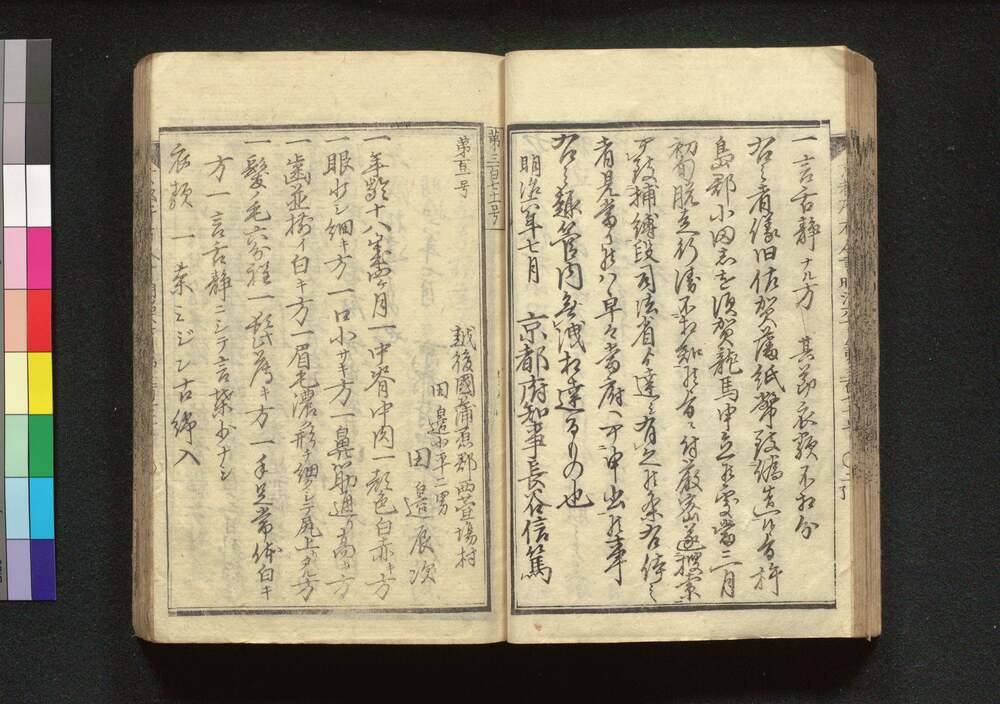 一 言舌静ナル方 一 其節衣類不相分
右之者儀旧佐賀藩紙幣致偽造候者杵
島郡小田志在須賀龍馬申立候処客歳三月
初旬脱走行衛不相知候旨ニ付厳密遂捜索
可致捕縛段司法省ゟ達シ有之候条右体之
者見当候ハヽ早々当府ヘ可申出候事
右之趣管内無洩相達るもの也
明治六年七月 京都府知事長谷信篤
第三百七十一号
第五号
越後國蒲原郡西萱場村
田邉小平二男
田邉辰次
一 年齢十八歳四ヶ月 一 中脊中肉 一 顔色白赤キ方
一 眼少シ細キ方 一 口小サキ方 一 鼻筋通リ高キ方
一 歯並揃イ白キ方 一 眉毛濃形チ細クシテ尻上カタル方
一 髪ノ毛六分程 一 髭薄キ方 一 手足常体白キ
方 一 言舌静ニシテ言葉少ナシ
衣類 一 茶ミジン古綿入